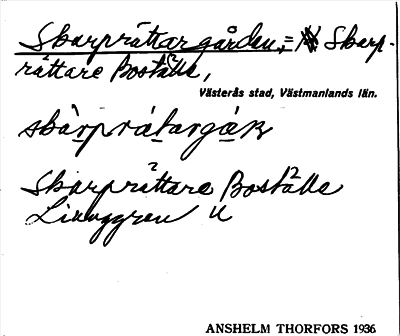 Skarprättargården, = Skarp-
rättare Boställe,
Västerås stad, Västmanlands län.
skàrprátargáɳ
Skarprättare Boställe
Liunggren u
ANSHELM THORFORS 1936